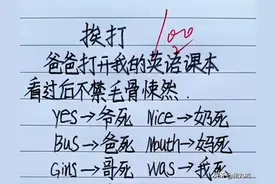 挨打 100
爸爸打开我的英语课本
看过后不禁毛骨悚然.
Yes→爷死 Nice→奶死
Bus→爸死 Mouth→妈死
Girls→哥死 Was→我死